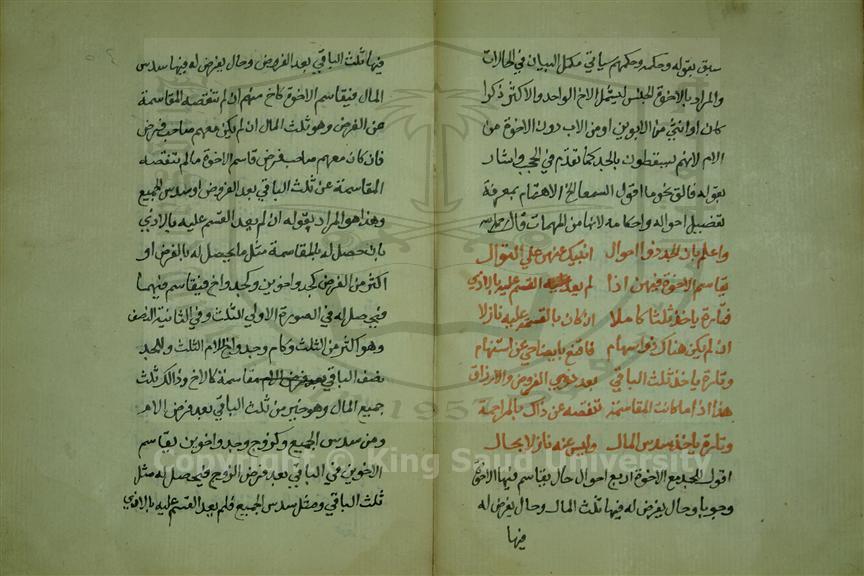 سبق بقوله وحكمه وحكمهم سياتي مكمل البيان في الحالات
والمراد بالاخوة الجنس ليشمل الاخ الواحد والاكثر ذكرا
كان او انثى من الابوين او من الاب دون الاخوة من
الام لانهم يسقطون بالجد كما تقدم في الحجب واشار
بقوله فالق نحو ما اقول السمعا الخ الاهتمام بمعرفة
تفصيل احواله واحكامه لانها من المهمات قال رحمه
واعلم بان الجد ذو احوال انبيك عنهن على التوال
يقاسم الاخوة فيهن اذا لم يعد القسم عليه بالاذي
فتارة ياخذ ثلثا كاملا ان كان بالقسمة عليه نازلا
ان لم يكن هناك ذو اسهام فاقنع بايضاحي عن استفهام
وتارة ياخذ ثلث الباقي بعد ذوي الفروض والارزاق
هذا اذا ما كانت المقاسمة تنقصه عن ذاك بالمزاحمة
وتارة ياخذ سدس المال وليس عنه نازلا بحال
اقول للجد مع الاخوة اربع احوال حال يقاسم فيها الاخوة
وجوبا وحال يفرض له فيها ثلث المال وحال يفرض له
فيها
فيها ثلث الباقي بعد الفروض وحال يفرض له فيها سدس
المال فيقاسم الاخوة كاخ منهم ان لم تنقصه المقاسمة
عن الفرض وهو ثلث المال ان لم يكن معهم صاحب فرض
فان كان معهم صاحب فرض قاسم الاخوة ما لم تنقصه
المقاسمة عن ثلث الباقي بعد الفروض او سدس الجميع
وهذا هو المراد بقوله ان لم يعد القسم عليه بالاذي
بان حصل له بالمقاسمة مثل ما يحصل له بالفرض او
اكثر من الفرض كجد واخوين وكجد واخ فيقاسم فيهما
فيحصل له في الصورة الاولي الثلث وفي الثانية النصف
وهو اكثر من الثلث وكام وجد واخ للام الثلث وللجد
نصف الباقي مقاسمة كالاخ وذالك ثلث
جميع المال وهو خير من ثلث الباقي بعد فرض الام
ومن سدس الجميع وكزوج وجد واخوين يقاسم
الاخوين في الباقي بعد فرض الزوج فيحصل له مثل
ثلث الباقي ومثل سدس الجميع فلم يعد القسم عليه بالاذي
Copyright © King Saud University
1957